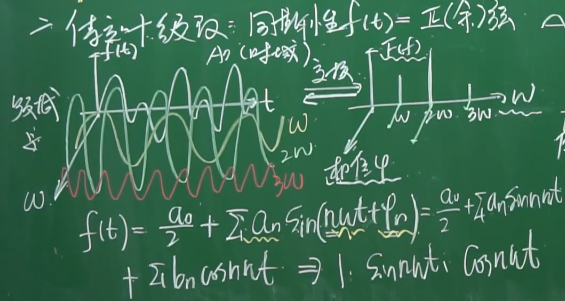 二、傅立叶级数：周期性f(t)=正(余)弦
f(t) A0(时域) 变换 F(f)
t ω
ω 2ω 3ω
ω 2ω 3ω
ω 相位φ
f(t)= a0/2 + Σ an sin(nωt+φn)= a0/2 +Σ an sin nωt
+ Σ bn cos nωt ⇒ 1. sin nωt. cos nωt